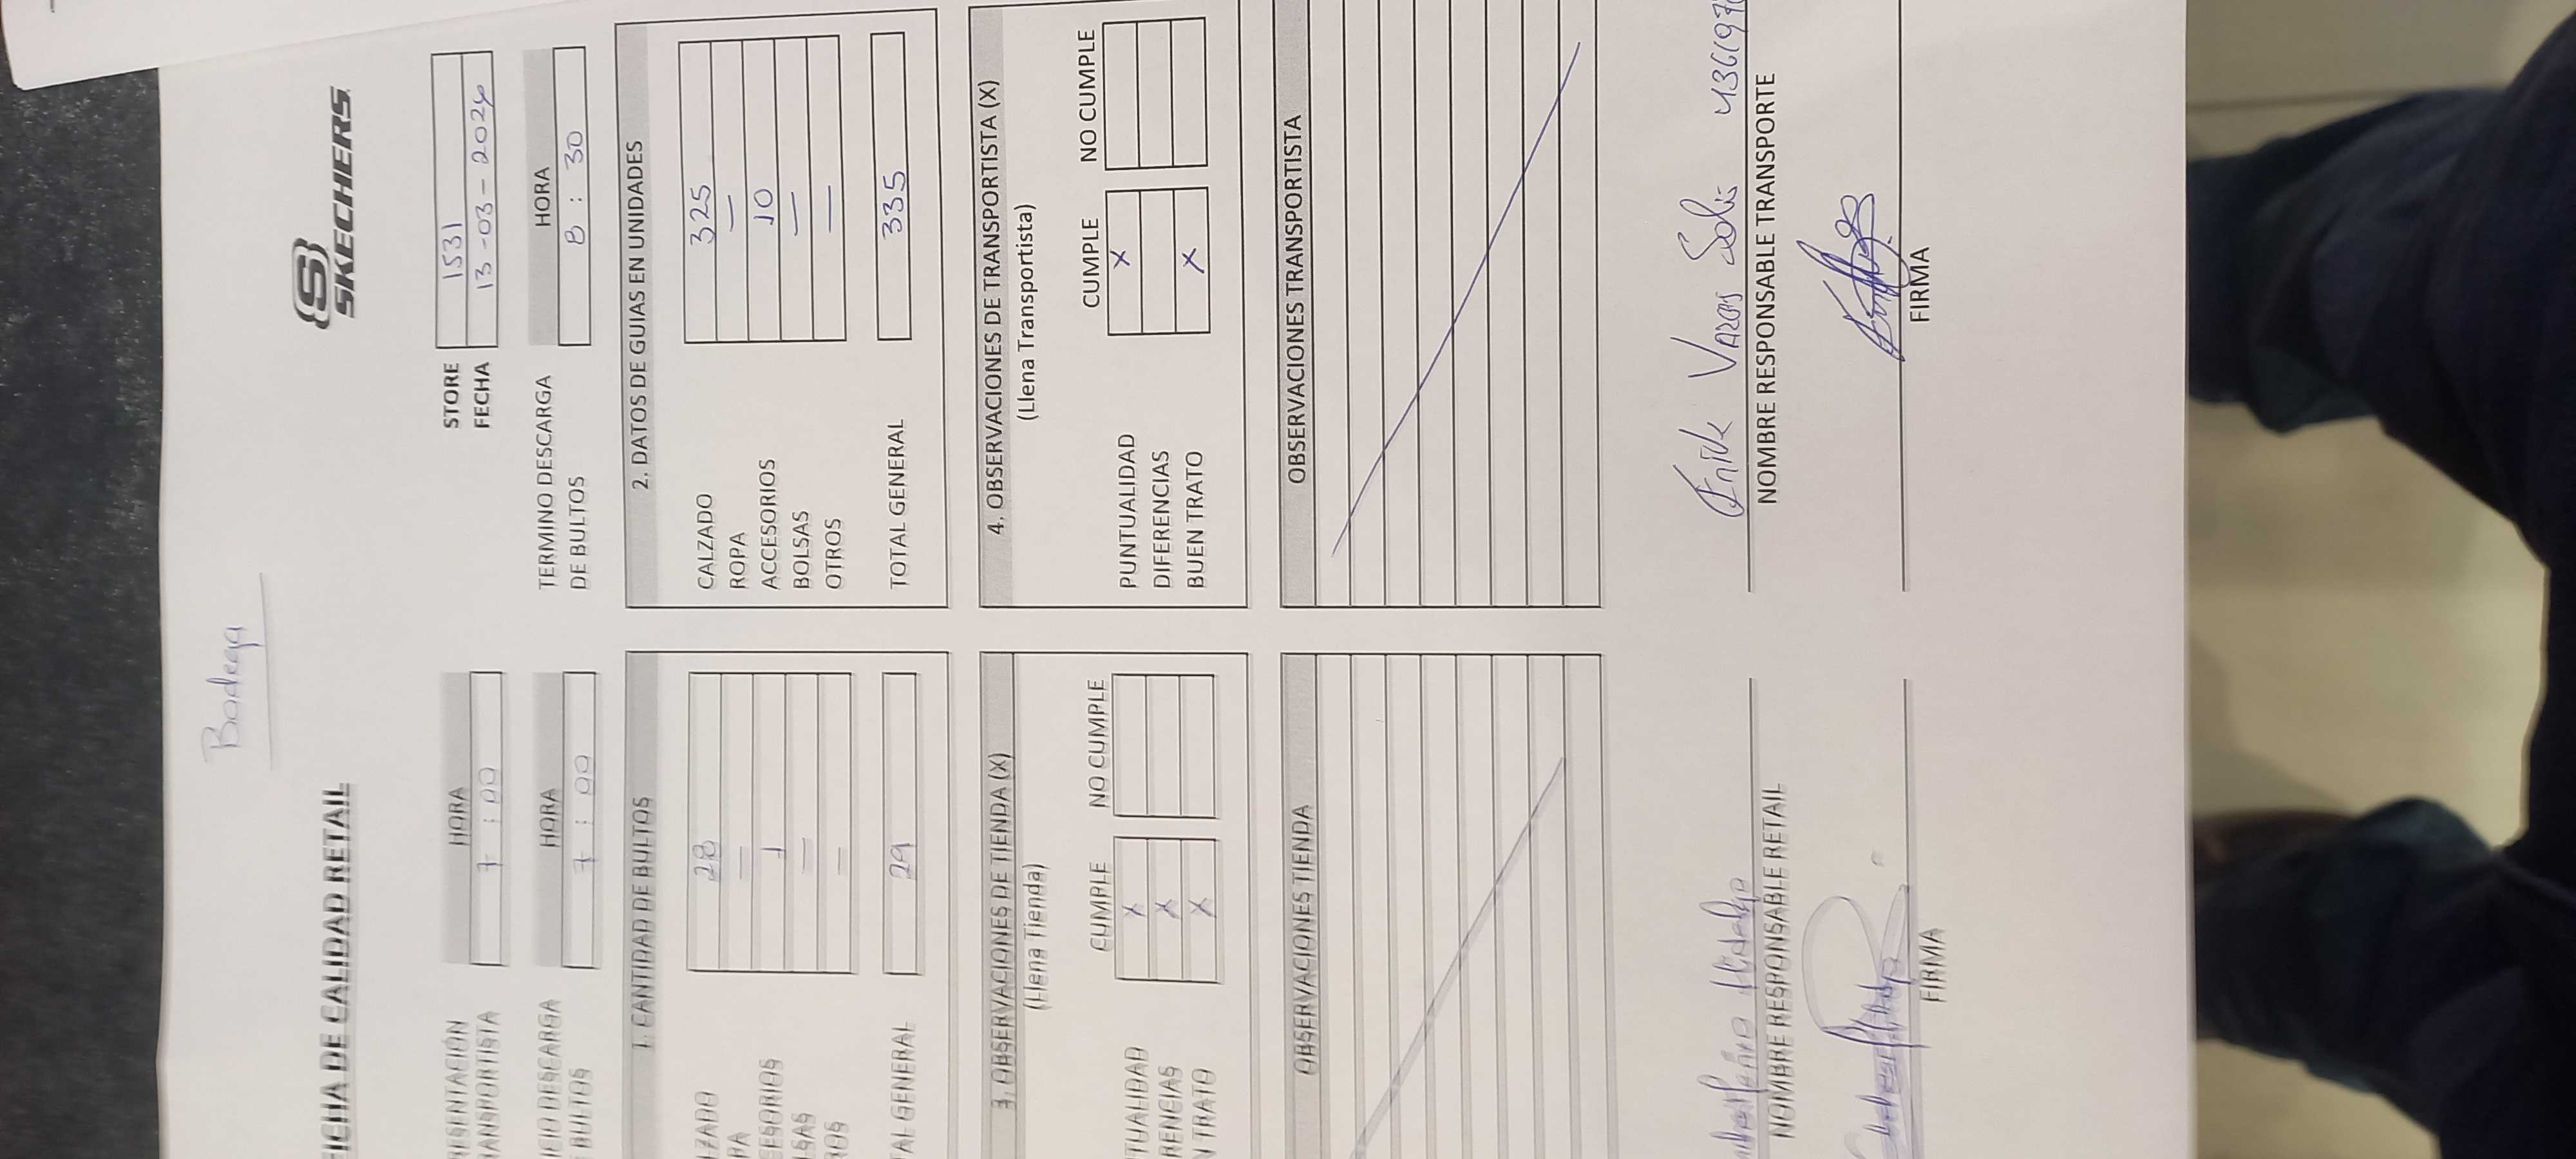 Bodega
FICHA DE CALIDAD RETAIL
SKECHERS
STORE 1531
FECHA 13-03-2024
RESENTACIÓN HORA
ANSPORTISTA 7 : 00
CIO DESCARGA HORA
BULTOS 7 : 00
TERMINO DESCARGA HORA
DE BULTOS 8 : 30
1. CANTIDAD DE BULTOS
ZADO 28
PA —
ESORIOS 1
SAS —
ROS —
AL GENERAL 29
2. DATOS DE GUIAS EN UNIDADES
CALZADO 325
ROPA —
ACCESORIOS 10
BOLSAS —
OTROS —
TOTAL GENERAL 335
3. OBSERVACIONES DE TIENDA (X)
(Llena Tienda)
CUMPLE NO CUMPLE
TUALIDAD X
RENCIAS X
N TRATO X
4. OBSERVACIONES DE TRANSPORTISTA (X)
(Llena Transportista)
CUMPLE NO CUMPLE
PUNTUALIDAD X
DIFERENCIAS
BUEN TRATO X
OBSERVACIONES TIENDA
OBSERVACIONES TRANSPORTISTA
NOMBRE RESPONSABLE RETAIL
FIRMA
Vargas Solis
NOMBRE RESPONSABLE TRANSPORTE
FIRMA